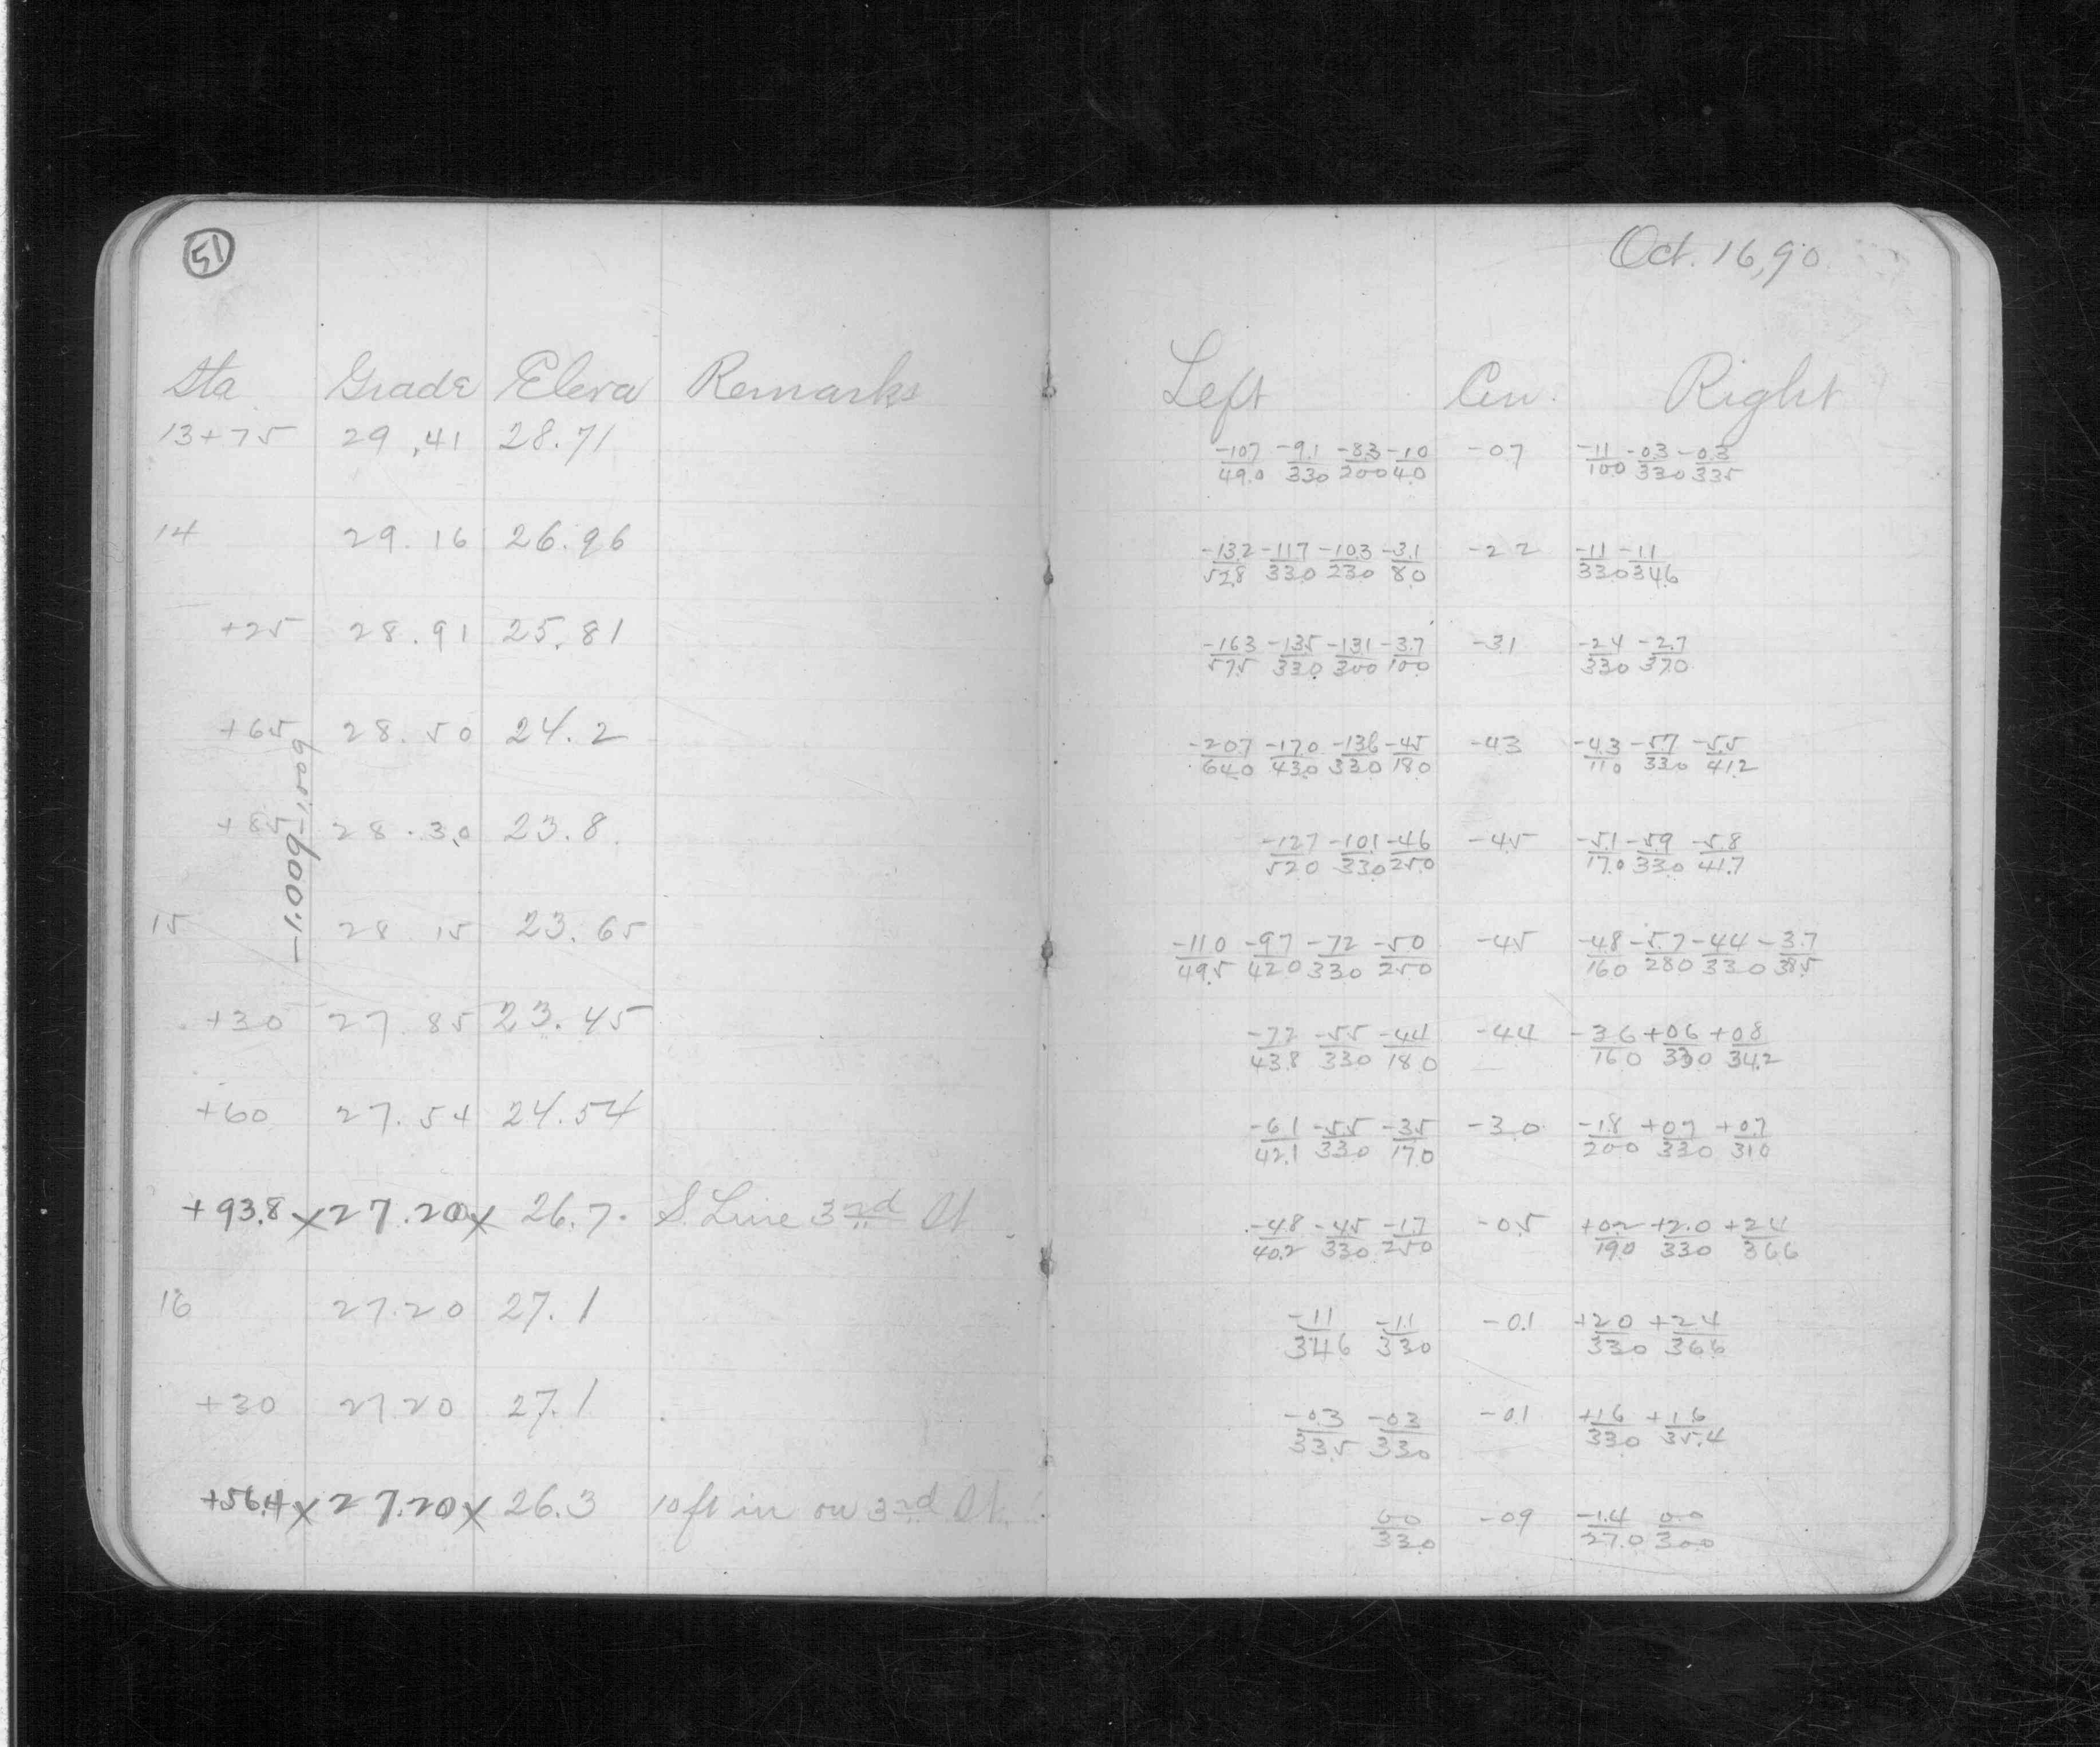 51
Oct. 16, 90
Sta Grade Eleva Remarks Left Cen. Right
13+75 29.41 28.71 -10.7/49.0 -9.1/33.0 -8.3/20.0 -1.0/4.0 -0.7 -1.1/10.0 -0.3/33.0 -0.3/33.5
14 29.16 26.96 -13.2/52.8 -11.7/33.0 -10.3/23.0 -3.1/8.0 -2.2 -1.1/33.0 -1.1/34.6
+25 28.91 25.81 -16.3/57.5 -13.5/33.0 -13.1/30.0 -3.7/10.0 -3.1 -2.4/33.0 -2.7/37.0
+65 28.50 24.2 -20.7/64.0 -17.0/43.0 -13.6/33.0 -4.5/18.0 -4.3 -4.3/11.0 -5.7/33.0 -5.5/41.2
+85 28.30 23.8 -12.7/52.0 -10.1/33.0 -4.6/25.0 -4.5 -5.1/17.0 -5.9/33.0 -5.8/41.7
-1.00%-1.00%
15 28.15 23.65 -11.0/49.5 -9.7/42.0 -7.2/33.0 -5.0/25.0 -4.5 -4.8/16.0 -5.7/28.0 -4.4/33.0 -3.7/38.5
+30 27.85 23.45 -7.2/43.8 -5.5/33.0 -4.4/18.0 -4.4 -3.6/16.0 +0.6/33.0 +0.8/34.2
+60 27.54 24.54 -6.1/42.1 -5.5/33.0 -3.5/17.0 -3.0 -1.8/20.0 +0.7/33.0 +0.7/31.0
+93.8 x 27.20 x 26.7. S. Line 3rd St -4.8/40.2 -4.5/33.0 -1.7/25.0 -0.5 +0.2/19.0 +2.0/33.0 +2.4/36.6
16 27.20 27.1 -1.1/34.6 -1.1/33.0 -0.1 +2.0/33.0 +2.4/36.6
+30 27.20 27.1 -0.3/33.5 -0.3/33.0 -0.1 +1.6/33.0 +1.6/35.4
+56.4 x 27.20 x 26.3 10 ft in on 3rd St. 0.0/33.0 -0.9 -1.4/27.0 0.0/30.0